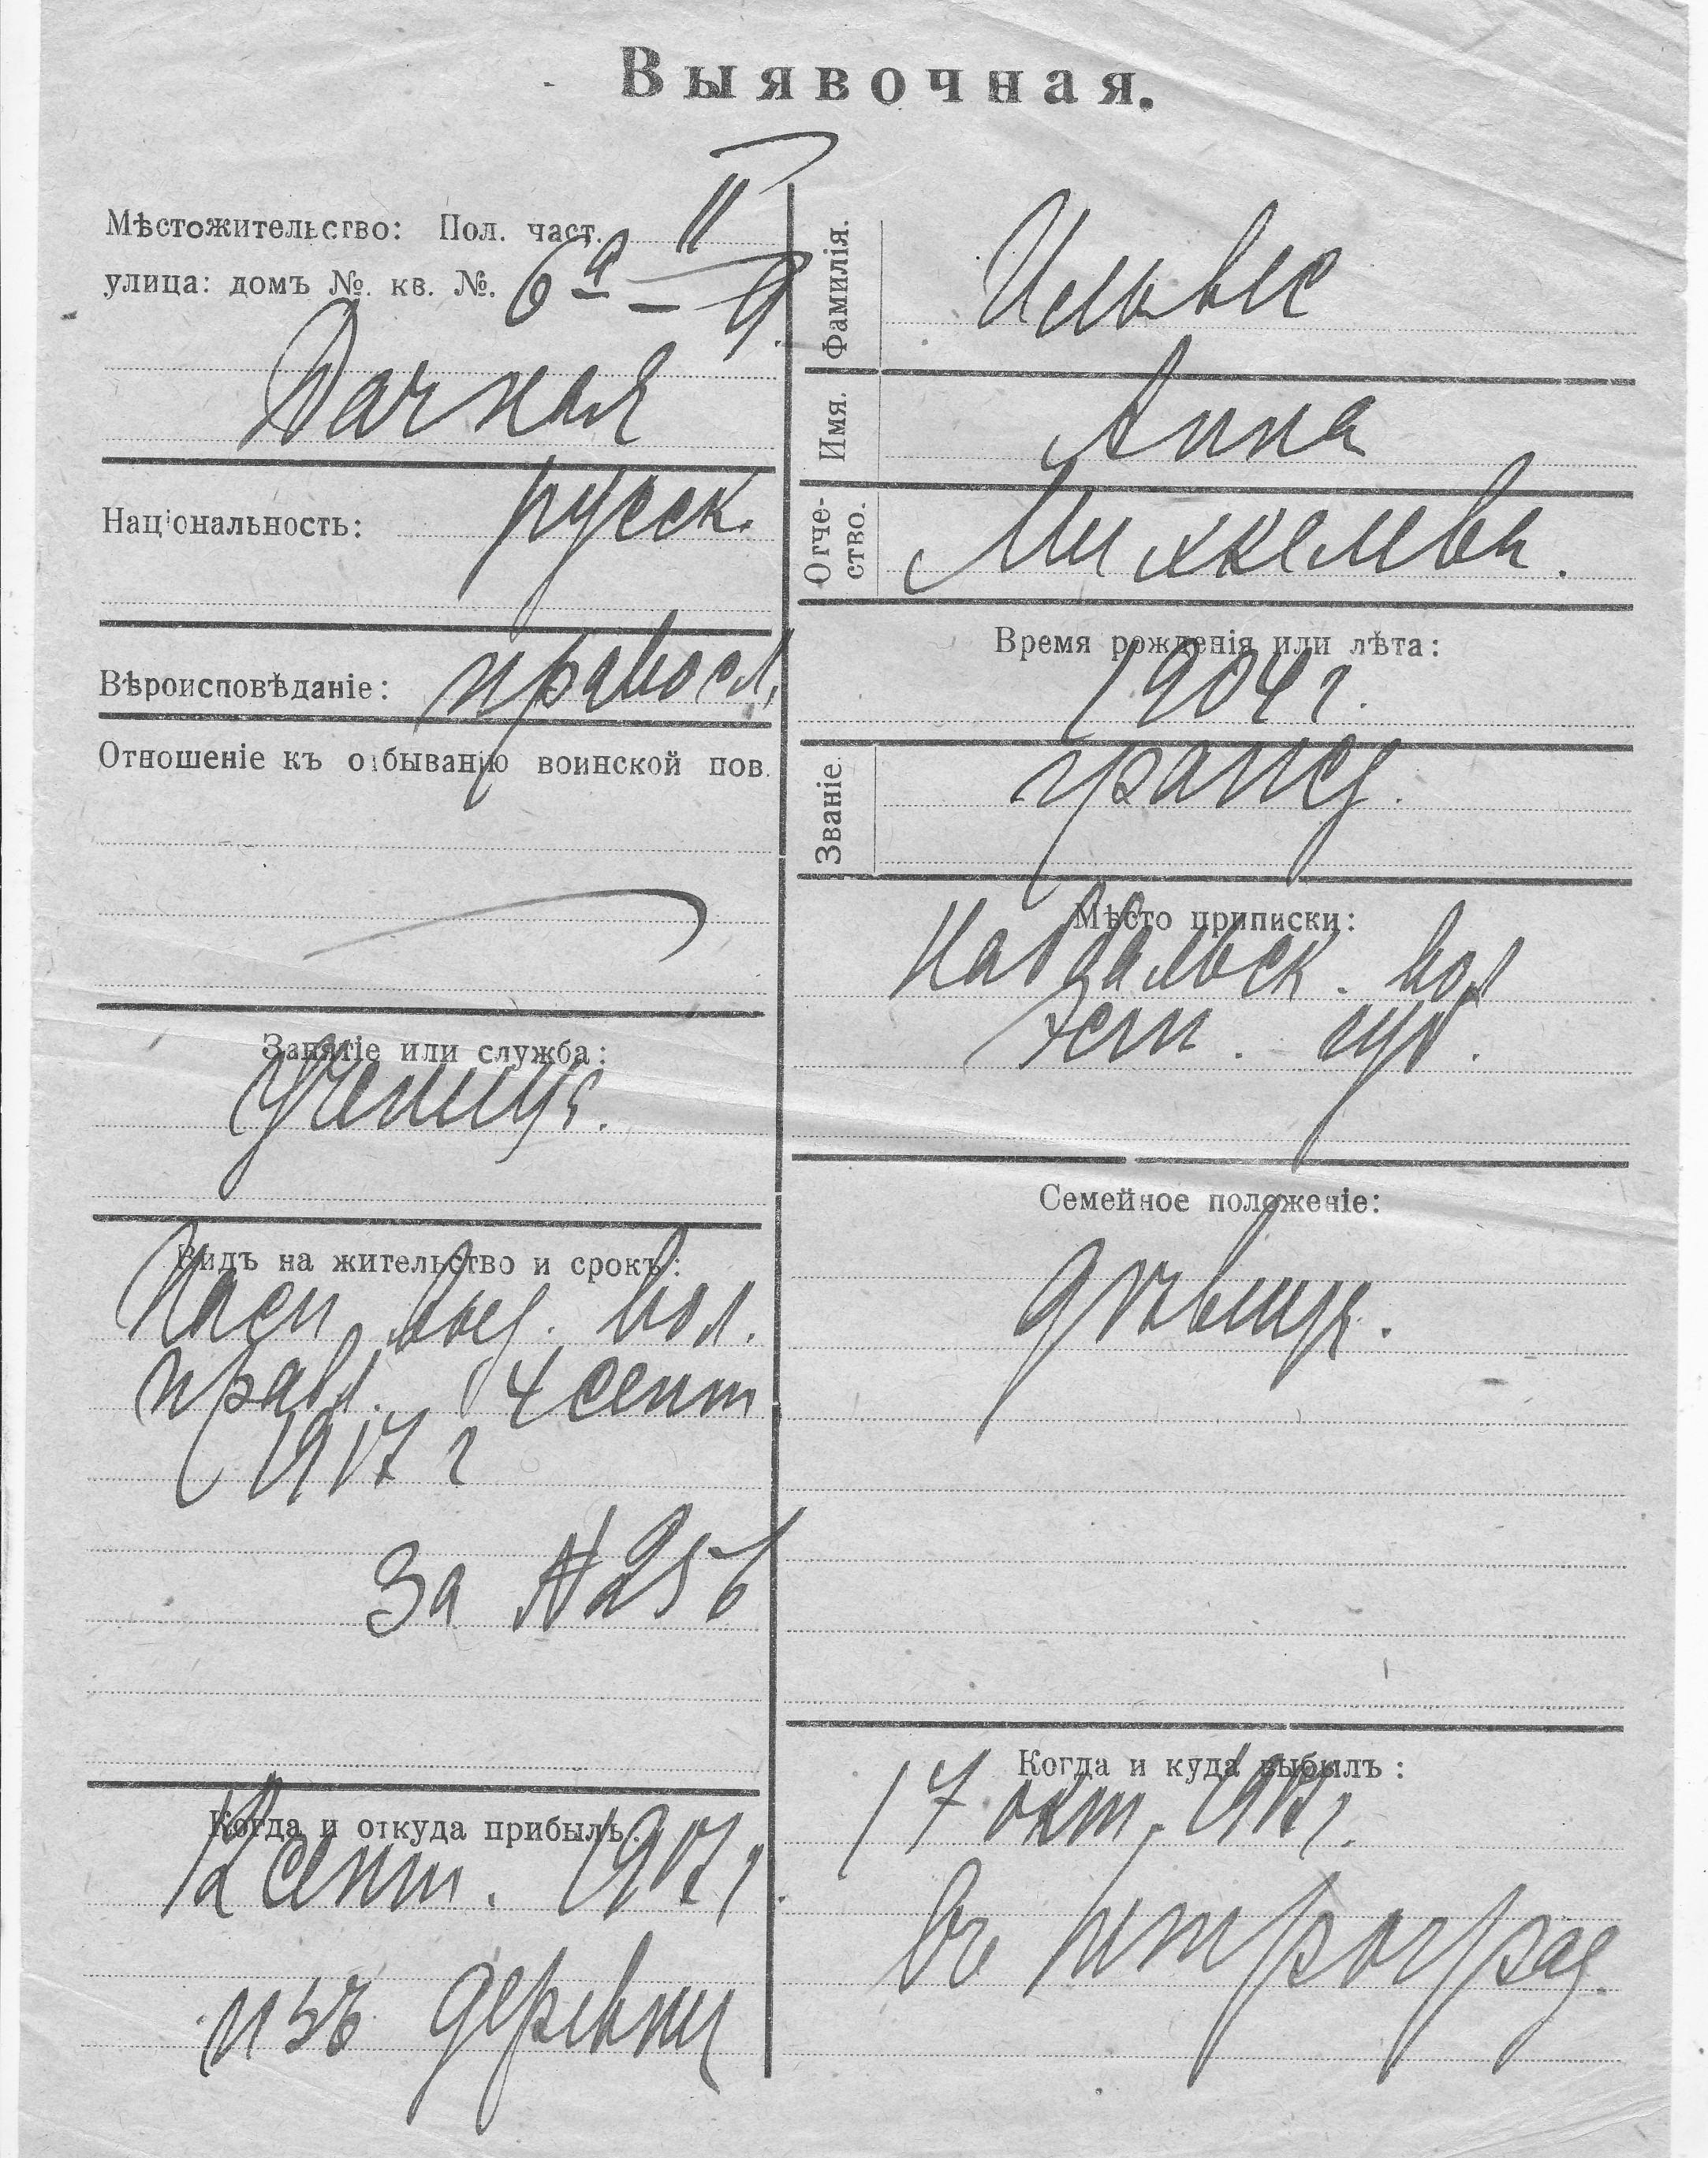 Выявочная.
Мѣстожительство: Пол. част. II
улица: домъ №. кв. №. 6а — 9.
Дачная
Національность: русск.
Вѣроисповѣданіе: правосл.
Отношеніе къ отбыванію воинской пов.
Занятіе или служба:
Учениц.
Видъ на жительство и срокъ:
Пасп. выд. вол.
правл. 4 сент
1917 г
За N 256
Когда и откуда прибылъ:
12 сент. 1917 г.
изъ деревни
Фамилія. Ильвес
Имя. Анна
Отчество. Михкелевн.
Время рожденія или лѣта:
1904 г.
Званіе. гражд.
Мѣсто приписки:
вол
Эстл. губ.
Семейное положеніе:
дѣвица.
Когда и куда выбылъ:
17 окт. 1917 г.
въ Петроград.